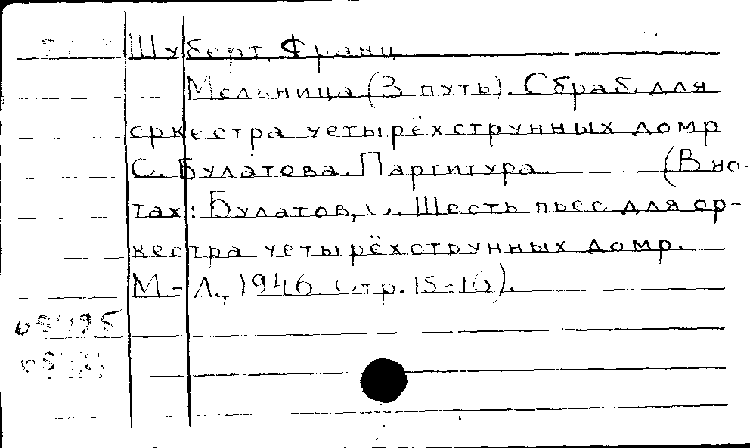 Шуберт, Франц
Мельница (В путь). Обраб. для
оркестра четырёхструнных домр
С. Булатова. Партитура (В но-
тах: Булатов, С. Шесть пьес для ор-
кестра четырёхструнных домр.
М-Л., 1946 стр. 15-16).